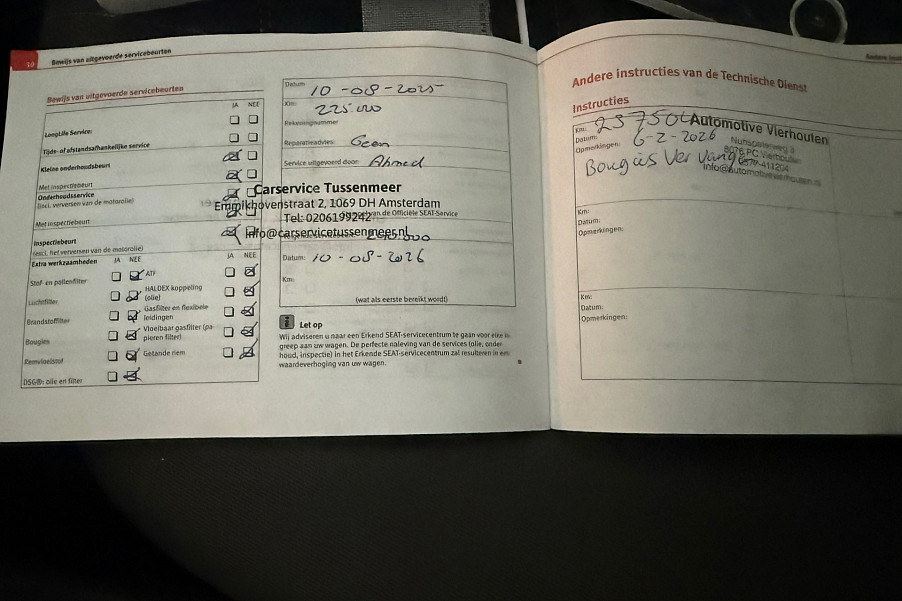 10
Bewijs van uitgevoerde servicebeurten
Bewijs van uitgevoerde servicebeurten
JA NEE
LongLife Service:
Tijds- of afstandsafhankelijke service
Kleine onderhoudsbeurt
Met inspectiebeurt
Onderhoudsservice
(incl. verversen van de motorolie)
Met inspectiebeurt
Inspectiebeurt
(excl. het verversen van de motorolie)
Extra werkzaamheden JA NEE JA NEE
Stof- en pollenfilter
Luchtfilter
Brandstoffilter
Bougies
Remvloeistof
DSG®: olie en filter
ATF
HALDEX koppeling
(olie)
Gasfilter en flexibele
leidingen
Vloeibaar gasfilter (pa
pieren filter)
Getande riem
Datum 10-08-2025
Km: 225.000
Reparatieadvies: Geen
Service uitgevoerd door: Ahmed
Carservice Tussenmeer
Emmikhovenstraat 2, 1069 DH Amsterdam
Tel: 0206199242
van de Officiële SEAT-Service
info@carservicetussenmeer.nl
Datum: 10-08-2026
Km:
(wat als eerste bereikt wordt)
Let op
Wij adviseren u naar een Erkend SEAT-servicecentrum te gaan voor elke in-
greep aan uw wagen. De perfecte naleving van de services (olie, onder-
houd, inspectie) in het Erkende SEAT-servicecentrum zal resulteren in een
waardeverhoging van uw wagen.
Andere instructies van de Technische Dienst
Instructies
Km:
Automotive Vierhouten
Datum: 6-2-2026
8076 PC Vierhouten
Opmerkingen:
Bougies
Km:
Datum:
Opmerkingen:
Km:
Datum:
Opmerkingen: